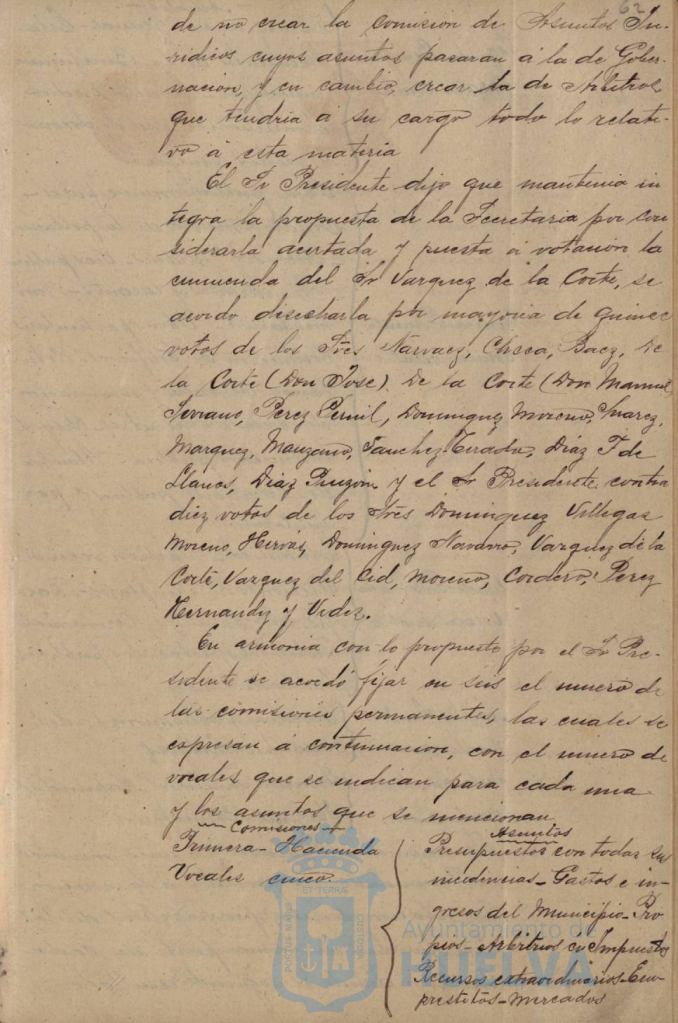 62
de no crear la comision de Asuntos Ju-
ridicos cuyos asuntos pasaran á la de Gober-
nacion, y en cambio, crear la de Arbitrios
que tendria á su cargo todo lo relati-
vo á esta materia
El Sr Presidente dijo que mantenia in
tegra la propuesta de la Secretaria por con
siderarla acertada y puesta á votacion la
enmienda del Sr Vazquez de la Corte, se
acordo desecharla por mayoria de quince
votos de los Sres Narvaez, Checa, Baez, De
la Corte (Don Jose), De la Corte (Don Manuel,
Serrano, Perez Pernil, Dominguez Moreno, Suarez,
Marquez, Manzano, Sanchez Tirado, Diaz F de
Llanos, Diaz Pinzon y el Sr Presidente, contra
diez votos de los Sres Dominguez Villegas
Moreno, Hervás, Dominguez Navarro, Vazquez de la
Corte, Vazquez del Cid, Moreno, Cordero, Perez
Hernandz y Videz.
En armonia con lo propuesto por el Sr Pre-
sidente se acordó fijar en seis el numero de
las comisiones permanentes, las cuales se
expresan á continuacion, con el numero de
vocales que se indican para cada una
y los asuntos que se mencionan
Comisiones
Primera - Hacienda
Vocales cinco.
Asuntos
Presupuestos con todas sus
incidencias - Gastos e in-
gresos del Municipio - Pro
pios - Arbitrios é Impuestos
Recursos extraordinarios - Em-
prestitos - Mercados
Ayuntamiento de
HUELVA